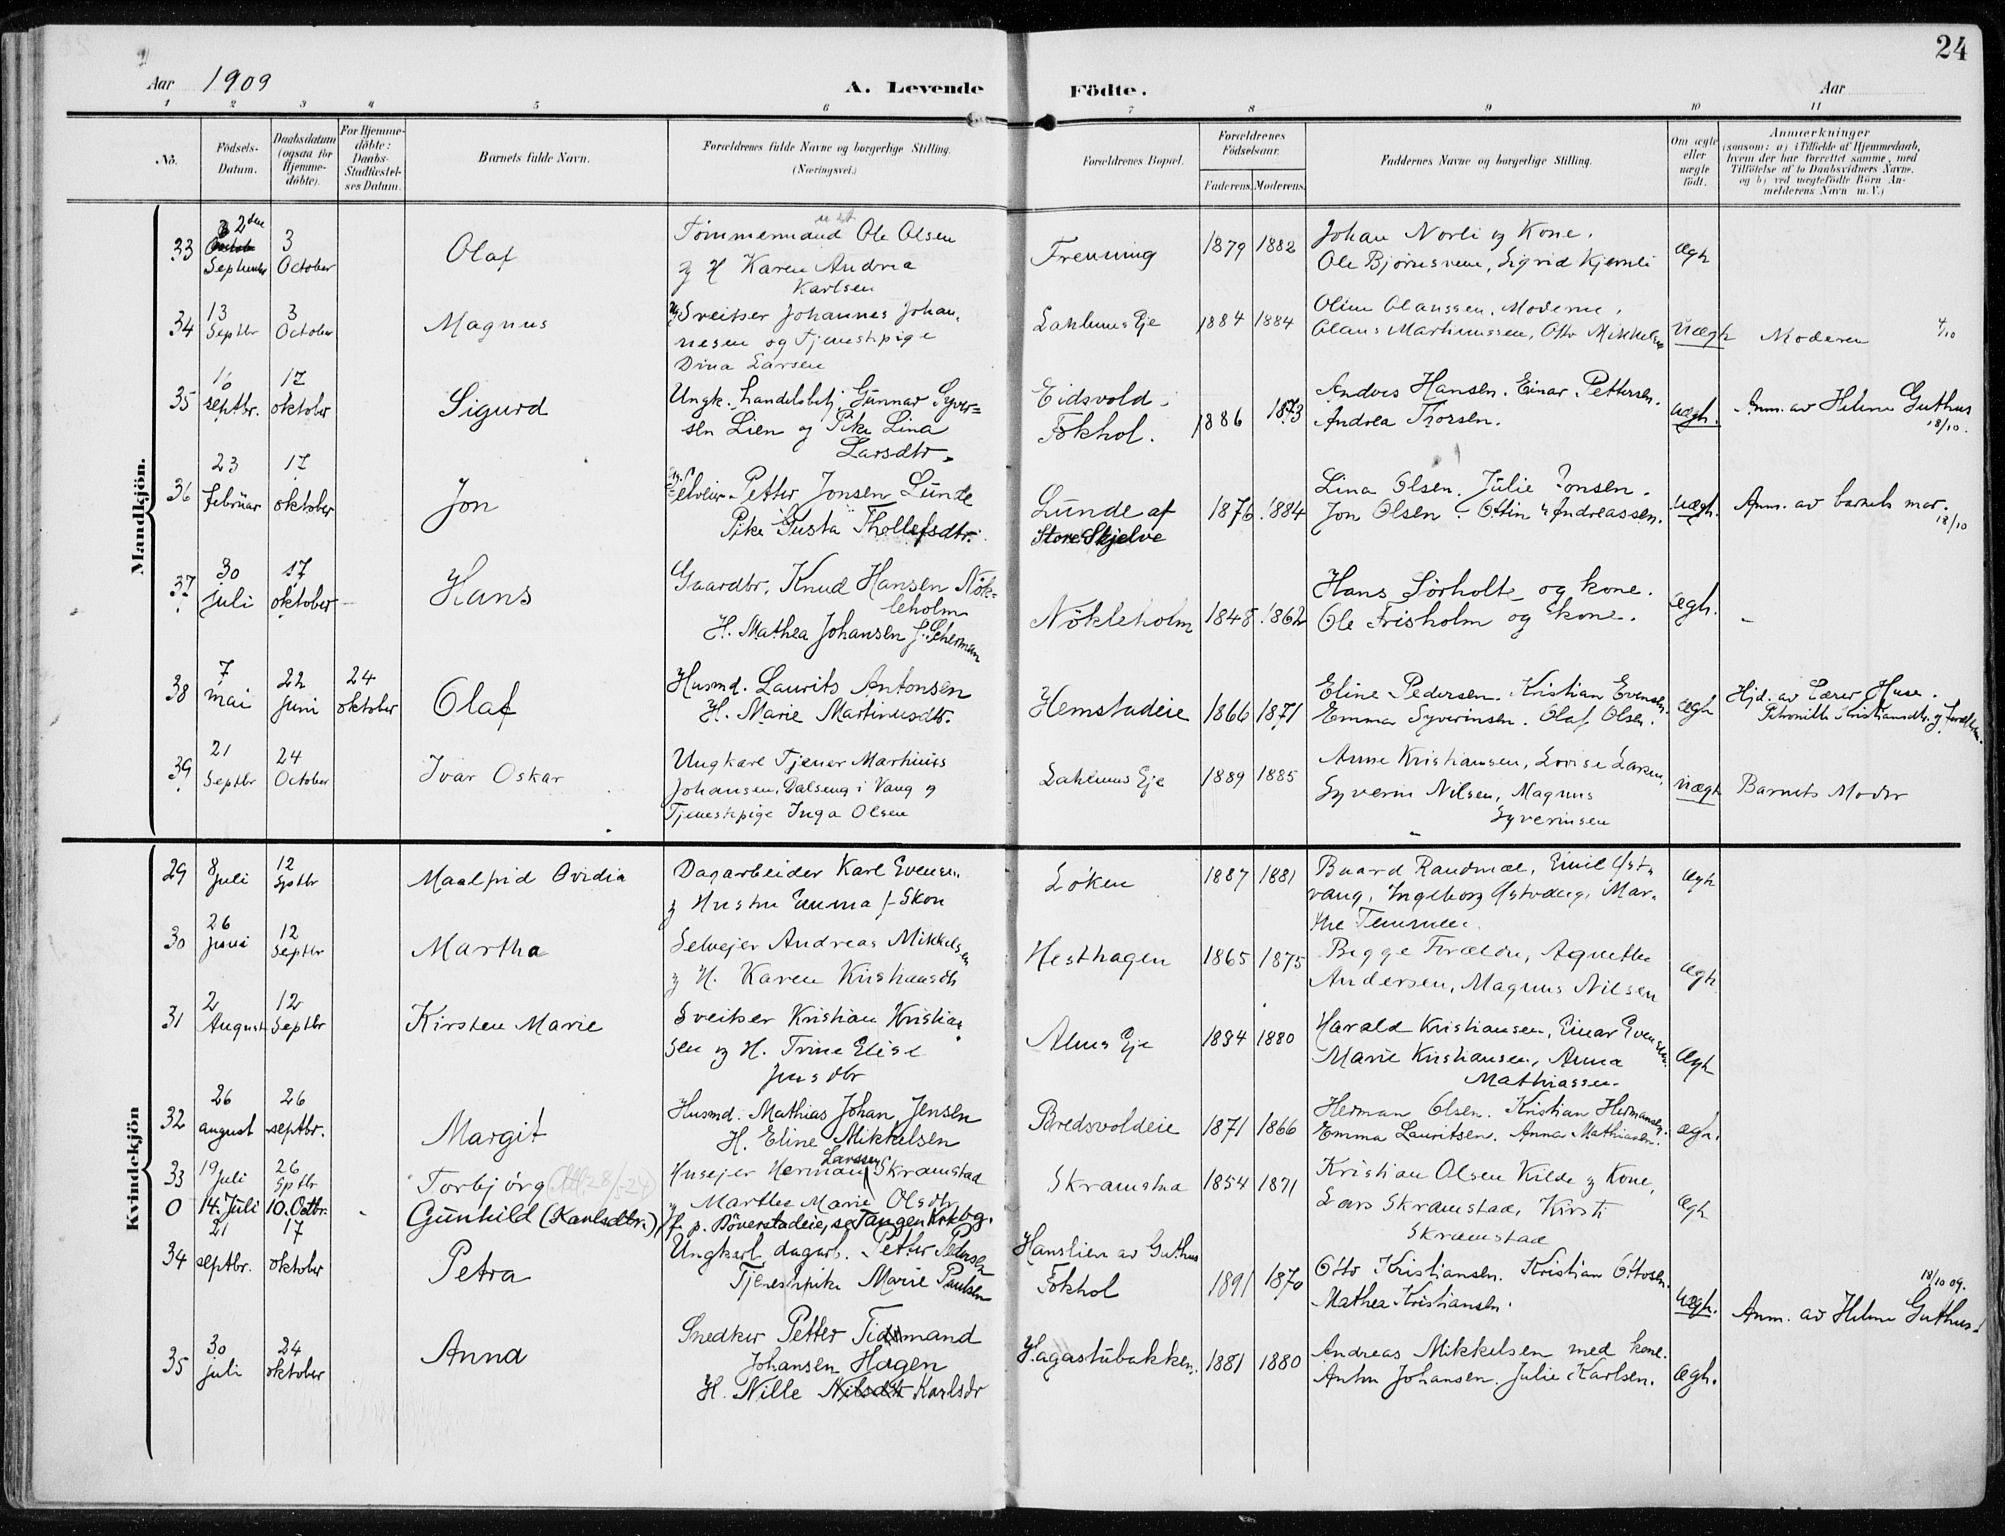 24
Aar 1909
A. Levende Födte.
Aar
1 2 3 4 5 6 7 8 9 10 11
No.
Födsels-Datum.
Daabsdatum (ogsaa for Hjemme-döbte).
For Hjemme-döbte: Daabs-Stadfæstel-ses Datum.
Barnets fulde Navn.
Forældrenes fulde Navne og borgerlige Stilling. (Næringsvei.)
Forældrenes Bopæl.
Forældrenes Födselsaar.
Faderens. Moderens.
Faddernes Navne og borgerlige Stilling.
Om ægte eller uægte födt.
Anmærkninger
(saasom: a) i Tilfælde af Hjemmedaab, hvem der har forrettet samme, med Tilföielse af to Daabsvidners Navne. og b) ved uægtefödte Börn An-melderens Navn m. V.)
Mandkjön.
33 2den September 3 October Olaf Tømmermand Ole Olsen
g H Karen Andrea
Karlsen
Frenning 1879 1882 Johan Norli og Kone.
Ole Bjørnsveen, Sigrid Kjernli ægh
34 13 Septbr 3 October Magnus Sveitser Johannes Johan,
nesen og Tjenestepige
Dina Larsen
Lakhus Eje 1884 1884 Oline Olaussen, Moderne,
Olaus Marthinussen, Otto Mikkelsen uægh Moderen 4/10
35 16 septbr. 17 oktober Sigurd Ungk. handelsbetj. Gunnar Syver=
sen Lien og Pike Lina
Larsdtr.
Eidsvold -
Fokhol. 1886 1873 Anders Hansen. Einar Pettersen.
Andrea Thorsen. uægh. Anm. av Helene Guthus 18/10.
36 23 februar 17 oktober Jon Petter Jonsen Lunde
Pike Gusta Thollefsdtr.
Lunde af
Store Skjelve 1876 1884 Lina Olsen. Julie Jonsen.
Jon Olsen. Ottin Andreassen. uægh. Anm. av barnets mor. 18/10
37 30 juli 17 oktober Hans Gaardbr. Knud Hansen Nök-
leholm
H. Mathea Johansen f. Scherman
Nökleholm 1848 1862 Hans Sørholte og kone.
Ole Frisholm og kone. ægh. -
38 7 mai 22 juni 24 oktober Olaf Husmd. Laurits Antonsen
H. Marie Martinusdtr.
Hemstadeie 1866 1871 Eline Pedersen. Kristian Evensen.
Emma Syverinsen. Olaf Olsen. ægh Hjd. av Lærer Huse.
Petronille Kristiansdtr. og Foreldrene.
39 21 Septbr 24 October Ivar Oskar Ungkarl Tjener Marthius
Johansen, Dalseng i Vang og
Tjenestepige Inga Olsen
Lakhus Eje 1889 1885 Anne Kristiansen, Lovise Larsen,
Syverin Nilsen, Magnus
Syverinsen uægh Barnets Moder
Kvindekjön
29 8 Juli 12 Sptbr Maalfrid Ovidia Dagarbeider Karl Evensen
g Hustru Emma f. Skou
Løken 1887 1881 Baard Raudmæl, Emil Østs
vang, Ingeborg Østvang, Mar-
the Temmen. ægh
30 26 Juni 12 Septbr Martha Selvejer Andreas Mikkelsen
g H. Karen Kristiansdtr
Hesthagen 1865 1875 Begge Forældre, Agnethe
Andersen, Magnus Nilsen ægh
31 2 August 12 Septbr Kirsten Marie Sveitser Kristian Kristian
sen og H. Trine Elise
Jensdtr
Alms Eje 1884 1880 Harald Kristiansen, Einar Evensen
Marie Kristiansen, Anna
Mathiassen. ægh
32 26 august 26 septbr. Margit Husmd. Mathias Johan Jensen
H. Eline Mikkelsen
Bredsvoldeie 1871 1866 Herman Olsen. Kristian Hermansen.
Emma Lauritsen. Anna Mathiasen. ægh.
33 19 Juli 26 Sptbr Torbjørg Husejer Herman Larssen Skramstad
g Marthe Marie Olsdtr
Skramstad 1854 1871 Kristian Olsen Kilde g Kone,
Lars Skramstad, Kirsti
Skramstad ægh
0 14. Juli 10. Octbr. Gunhild (Karlsdtr.) f. p. Röverstadeie, se Tangen Kirkebog.
34 21 septbr. 17 oktober Petra Ungkarl dagarb. Petter Pedersen
Tjenestepike Marie Paulsen
Hanslien av Guthus
Fokhol 1891 1870 Otto Kristiansen. Kristian Ottosen.
Mathea Kristiansen. uægh. 18/10 09.
Anm. av Helene Guthus.
35 30 juli 24 oktober Anna Snedker Petter Tidemand
Johansen Hagen
H. Nille Karlsdr
Hagastubakken. 1881 1880 Andreas Mikkelsen med kone.
Anton Johansen. Julie Karlsen. ægh.